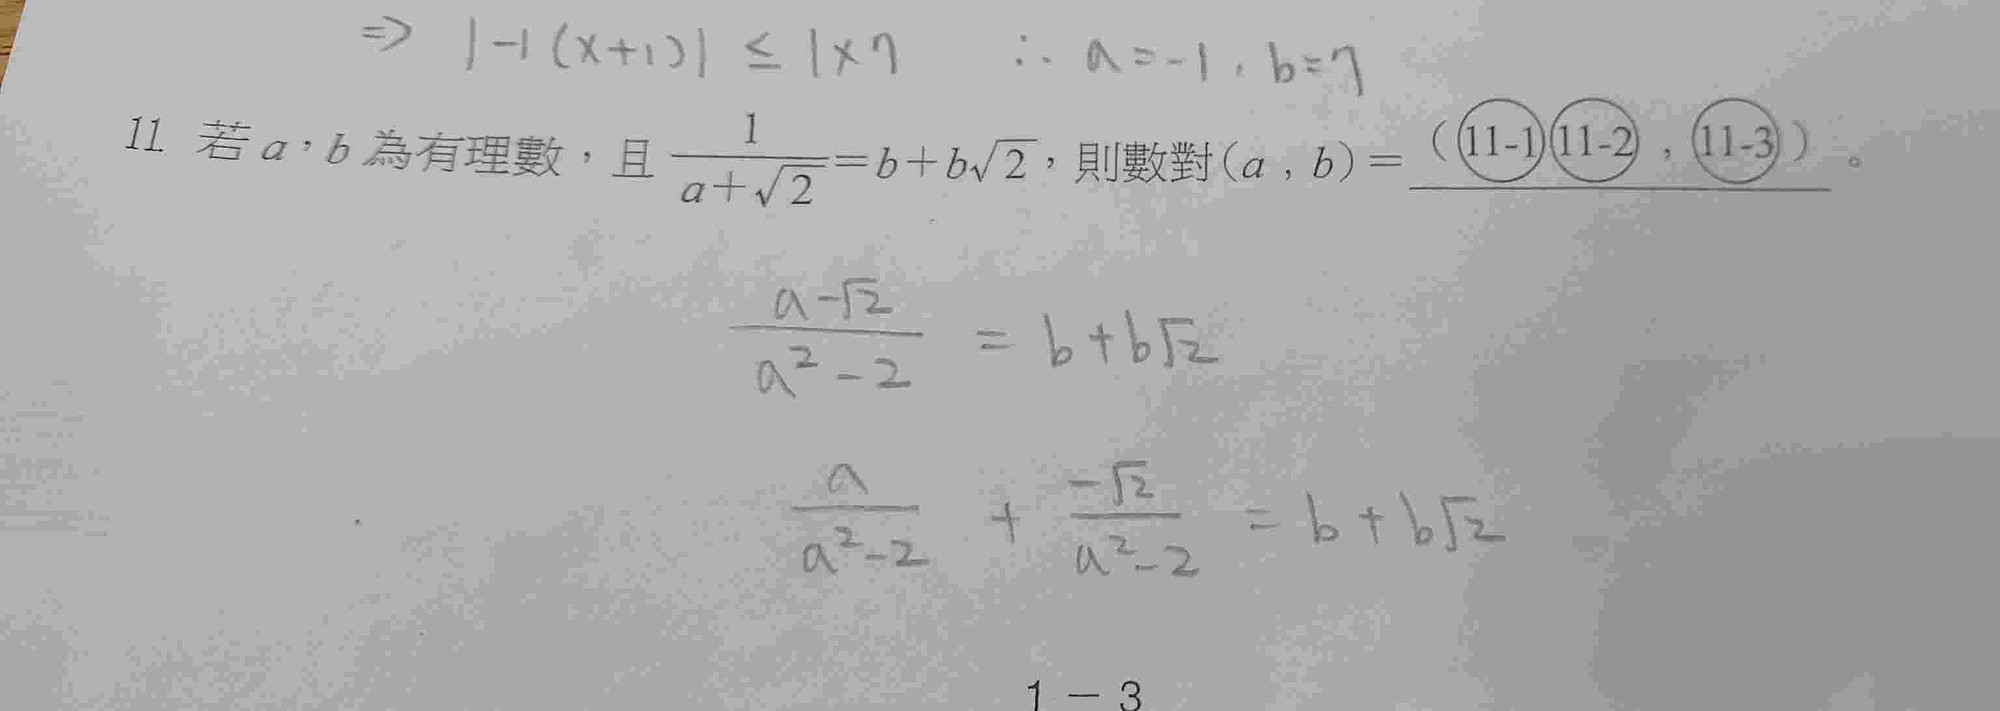 ⇒ |-1(x+1)| ≤ 1×7 ∴ a=-1, b=7
11. 若 a，b 為有理數，且 \frac{1}{a+√2}=b+b√2，則數對(a , b)= ( (11-1) (11-2) , (11-3) ) 。
\frac{a-√2}{a²-2} = b+b√2
\frac{a}{a²-2} + \frac{-√2}{a²-2} = b+b√2
1 － 3